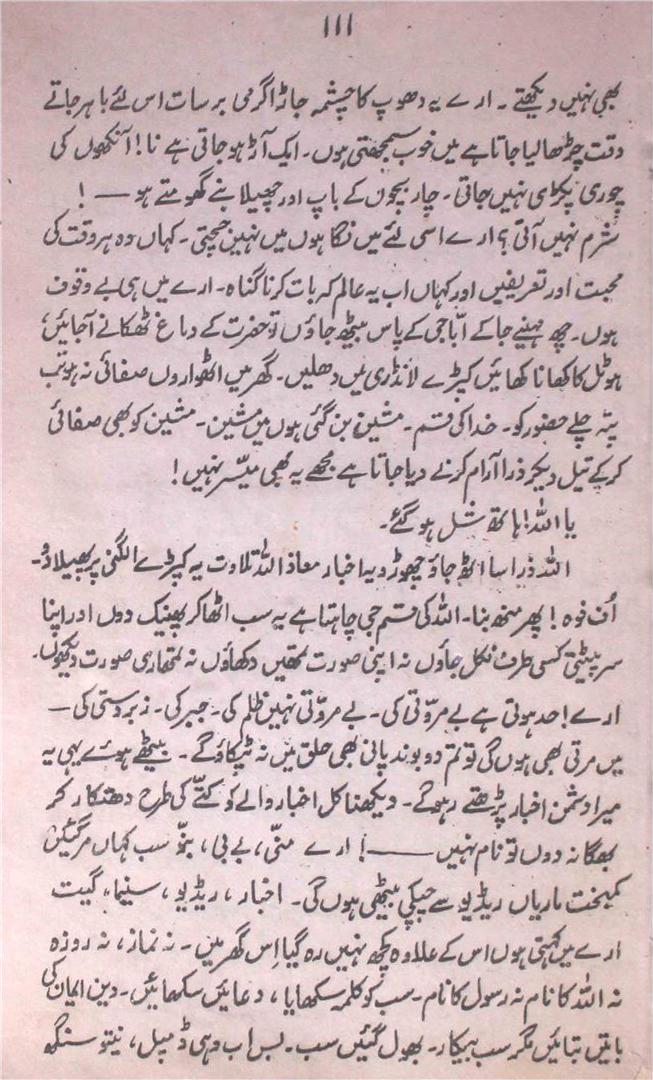 ۱۱۱
بھی نہیں دیکھتے ۔ ارے یہ دھوپ کا چشمہ جاڑا گرمی برسات اس لئے باہر جاتے
وقت چڑھا لیا جاتا ہے میں خوب سمجھتی ہوں۔ ایک آڑ ہو جاتی ہے نا! آنکھوں کی
چوری پکڑی نہیں جاتی۔ چار بچوں کے باپ اور چھیلا بنے گھومتے ہو — !
شرم نہیں آتی؟ ارے اسی لئے میں نگاہوں میں نہیں جچتی۔ کہاں وہ ہر وقت کی
محبت اور تعریفیں اور کہاں اب یہ عالم کہ بات کرنا گناہ۔ ارے میں ہی بے وقوف
ہوں۔ چھ مہینے جا کے ابّا جی کے پاس بیٹھ جاؤں تو حضرت کے دماغ ٹھکانے آجائیں،
ہوٹل کا کھانا کھائیں کپڑے لانڈری میں دھلیں۔ گھر میں اٹھواروں صفائی نہ ہو تب
پتہ چلے حضور کو۔ خدا کی قسم۔ مشین بن گئی ہوں میں مشین۔ مشین کو بھی صفائی
کر کے تیل دیکر ذرا آرام کرنے دیا جاتا ہے مجھے یہ بھی میسّر نہیں!
یا اللہ! ہاتھ شل ہو گئے۔
اللہ ذرا سا اٹھ جاؤ چھوڑو یہ اخبار معاذ اللہ تلاوت یہ کپڑے الگنی پر پھیلا دو۔
اُف فوہ! پھر منھ بنا۔ اللہ کی قسم جی چاہتا ہے یہ سب اٹھا کر پھینک دوں اور اپنا
سر پیٹتی کسی طرف نکل جاؤں نہ اپنی صورت تمھیں دکھاؤں نہ تمھاری صورت دیکھوں۔
ارے! حد ہوتی ہے بے مروّتی کی۔ بے مروّتی نہیں ظلم کی۔ جبر کی۔ زبردستی کی —
میں مرتی بھی ہوں گی تو تم دو بوند پانی بھی حلق میں نہ ٹپکاؤ گے۔ بیٹھے ہوئے یہی یہ
میرا دشمن اخبار پڑھتے رہو گے۔ دیکھنا کل اخبار والے کو کتّے کی طرح دھتکار کر
بھگا نہ دوں تو نام نہیں —— ! ارے منّی، بے بی، بنّو سب کہاں مر گئیں
کمبخت ماریاں ریڈیو سے چپکی بیٹھی ہوں گی۔ اخبار، ریڈیو، سنیما، گیت
ارے میں کہتی ہوں اس کے علاوہ کچھ نہیں رہ گیا اِس گھر میں۔ نہ نماز، نہ روزہ
نہ اللہ کا نام نہ رسول کا نام۔ سب کو کلمہ سکھایا، دعائیں سکھائیں۔ دین ایمان کی
باتیں بتائیں مگر سب بیکار۔ بھول گئیں سب۔ بس اب وہی ڈمپل، نیتو سنگھ